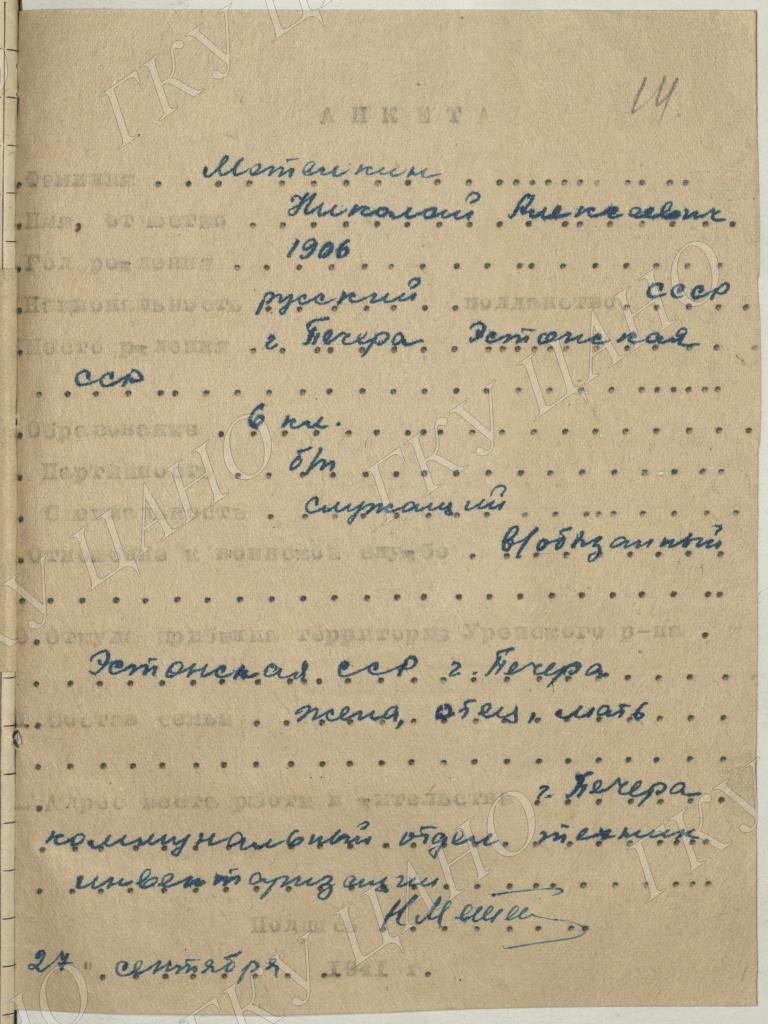 14
АНКЕТА
Фамилия Маталкин
Имя, отчество Николай Алексеевич
Год рождения 1906
Национальность русский подданство СССР
Место рождения г. Печера Эстонская
ССР
Образование 6 кл.
Партийность б/п
Специальность служащий
Отношение к воинской службе в/обязанный
Откуда прибыл на территорию Уренского р-на
Эстонская ССР г. Печера
Состав семьи жена, отец, мать
Адрес места работы и жительства г. Печера
коммунальный отдел техник
инвентаризации
Подпись
27 " сентября 1941 г.
ГКУ ЦАНО